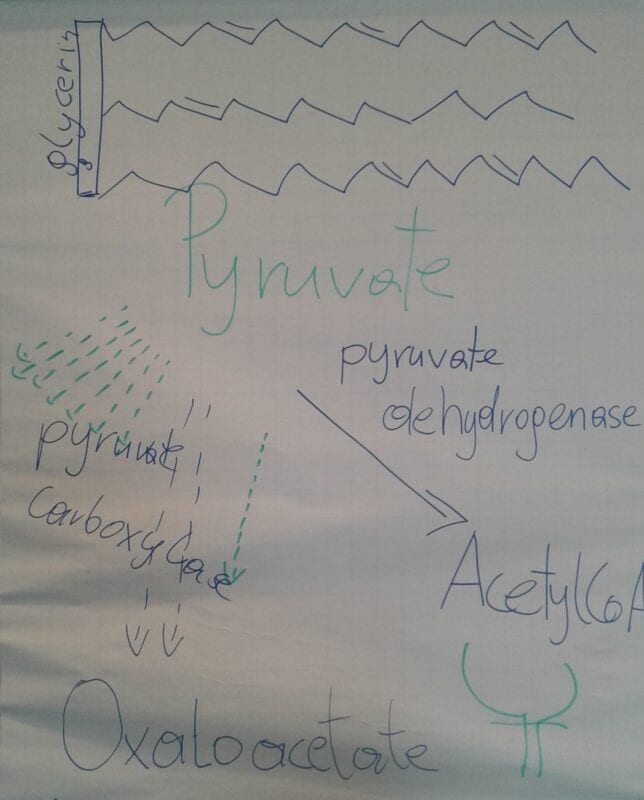 glycerin
Pyruvate
pyruvate
dehydrogenase
pyruvate
carboxylase
AcetylCoA
Oxaloacetate